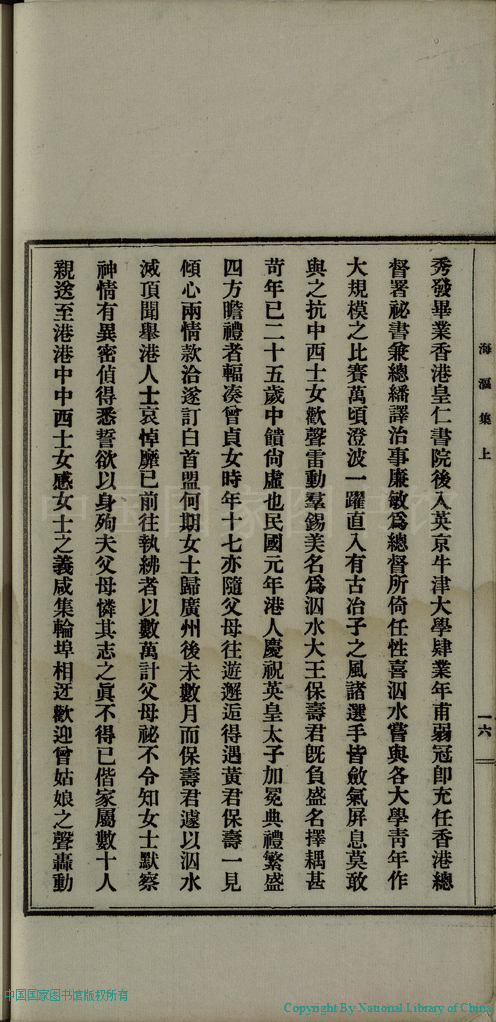 海漚集上
一六
秀發畢業香港皇仁書院後入英京牛津大學肄業年甫弱冠卽充任香港總
督署祕書兼總繙譯治事廉敏爲總督所倚任性喜泅水嘗與各大學靑年作
大規模之比賽萬頃澄波一躍直入有古冶子之風諸選手皆斂氣屏息莫敢
與之抗中西士女歡聲雷動羣錫美名爲泅水大王保壽君旣負盛名擇耦甚
苛年已二十五歲中饋尙虛也民國元年港人慶祝英皇太子加冕典禮繁盛
四方瞻禮者輻湊曾貞女時年十七亦隨父母往遊邂逅得遇黃君保壽一見
傾心兩情款洽遂訂白首盟何期女士歸廣州後未數月而保壽君遽以泅水
滅頂聞舉港人士哀悼靡已前往執紼者以數萬計父母祕不令知女士默察
神情有異密偵得悉誓欲以身殉夫父母憐其志之眞不得已偕家屬數十人
親送至港港中中西士女感女士之義咸集輪埠相迓歡迎曾姑娘之聲轟動
中国国家图书馆版权所有
Copyright By National Library of China